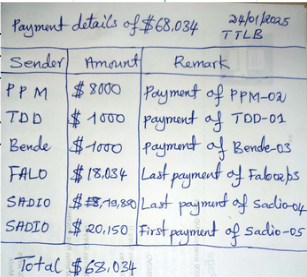 Payment details of $68,034
24/01/2025
TTLB
Sender Amount Remark
PPM $ 8000 Payment of PPM-02
TDD $ 1000 payment of TDD-01
Bende $ 1000 payment of Bende-03
FALO $ 18,034 Last payment of
SADIO $ 19,850 Last payment of Sadio-04
SADIO $ 20,150 First payment of Sadio-05
Total $68,034